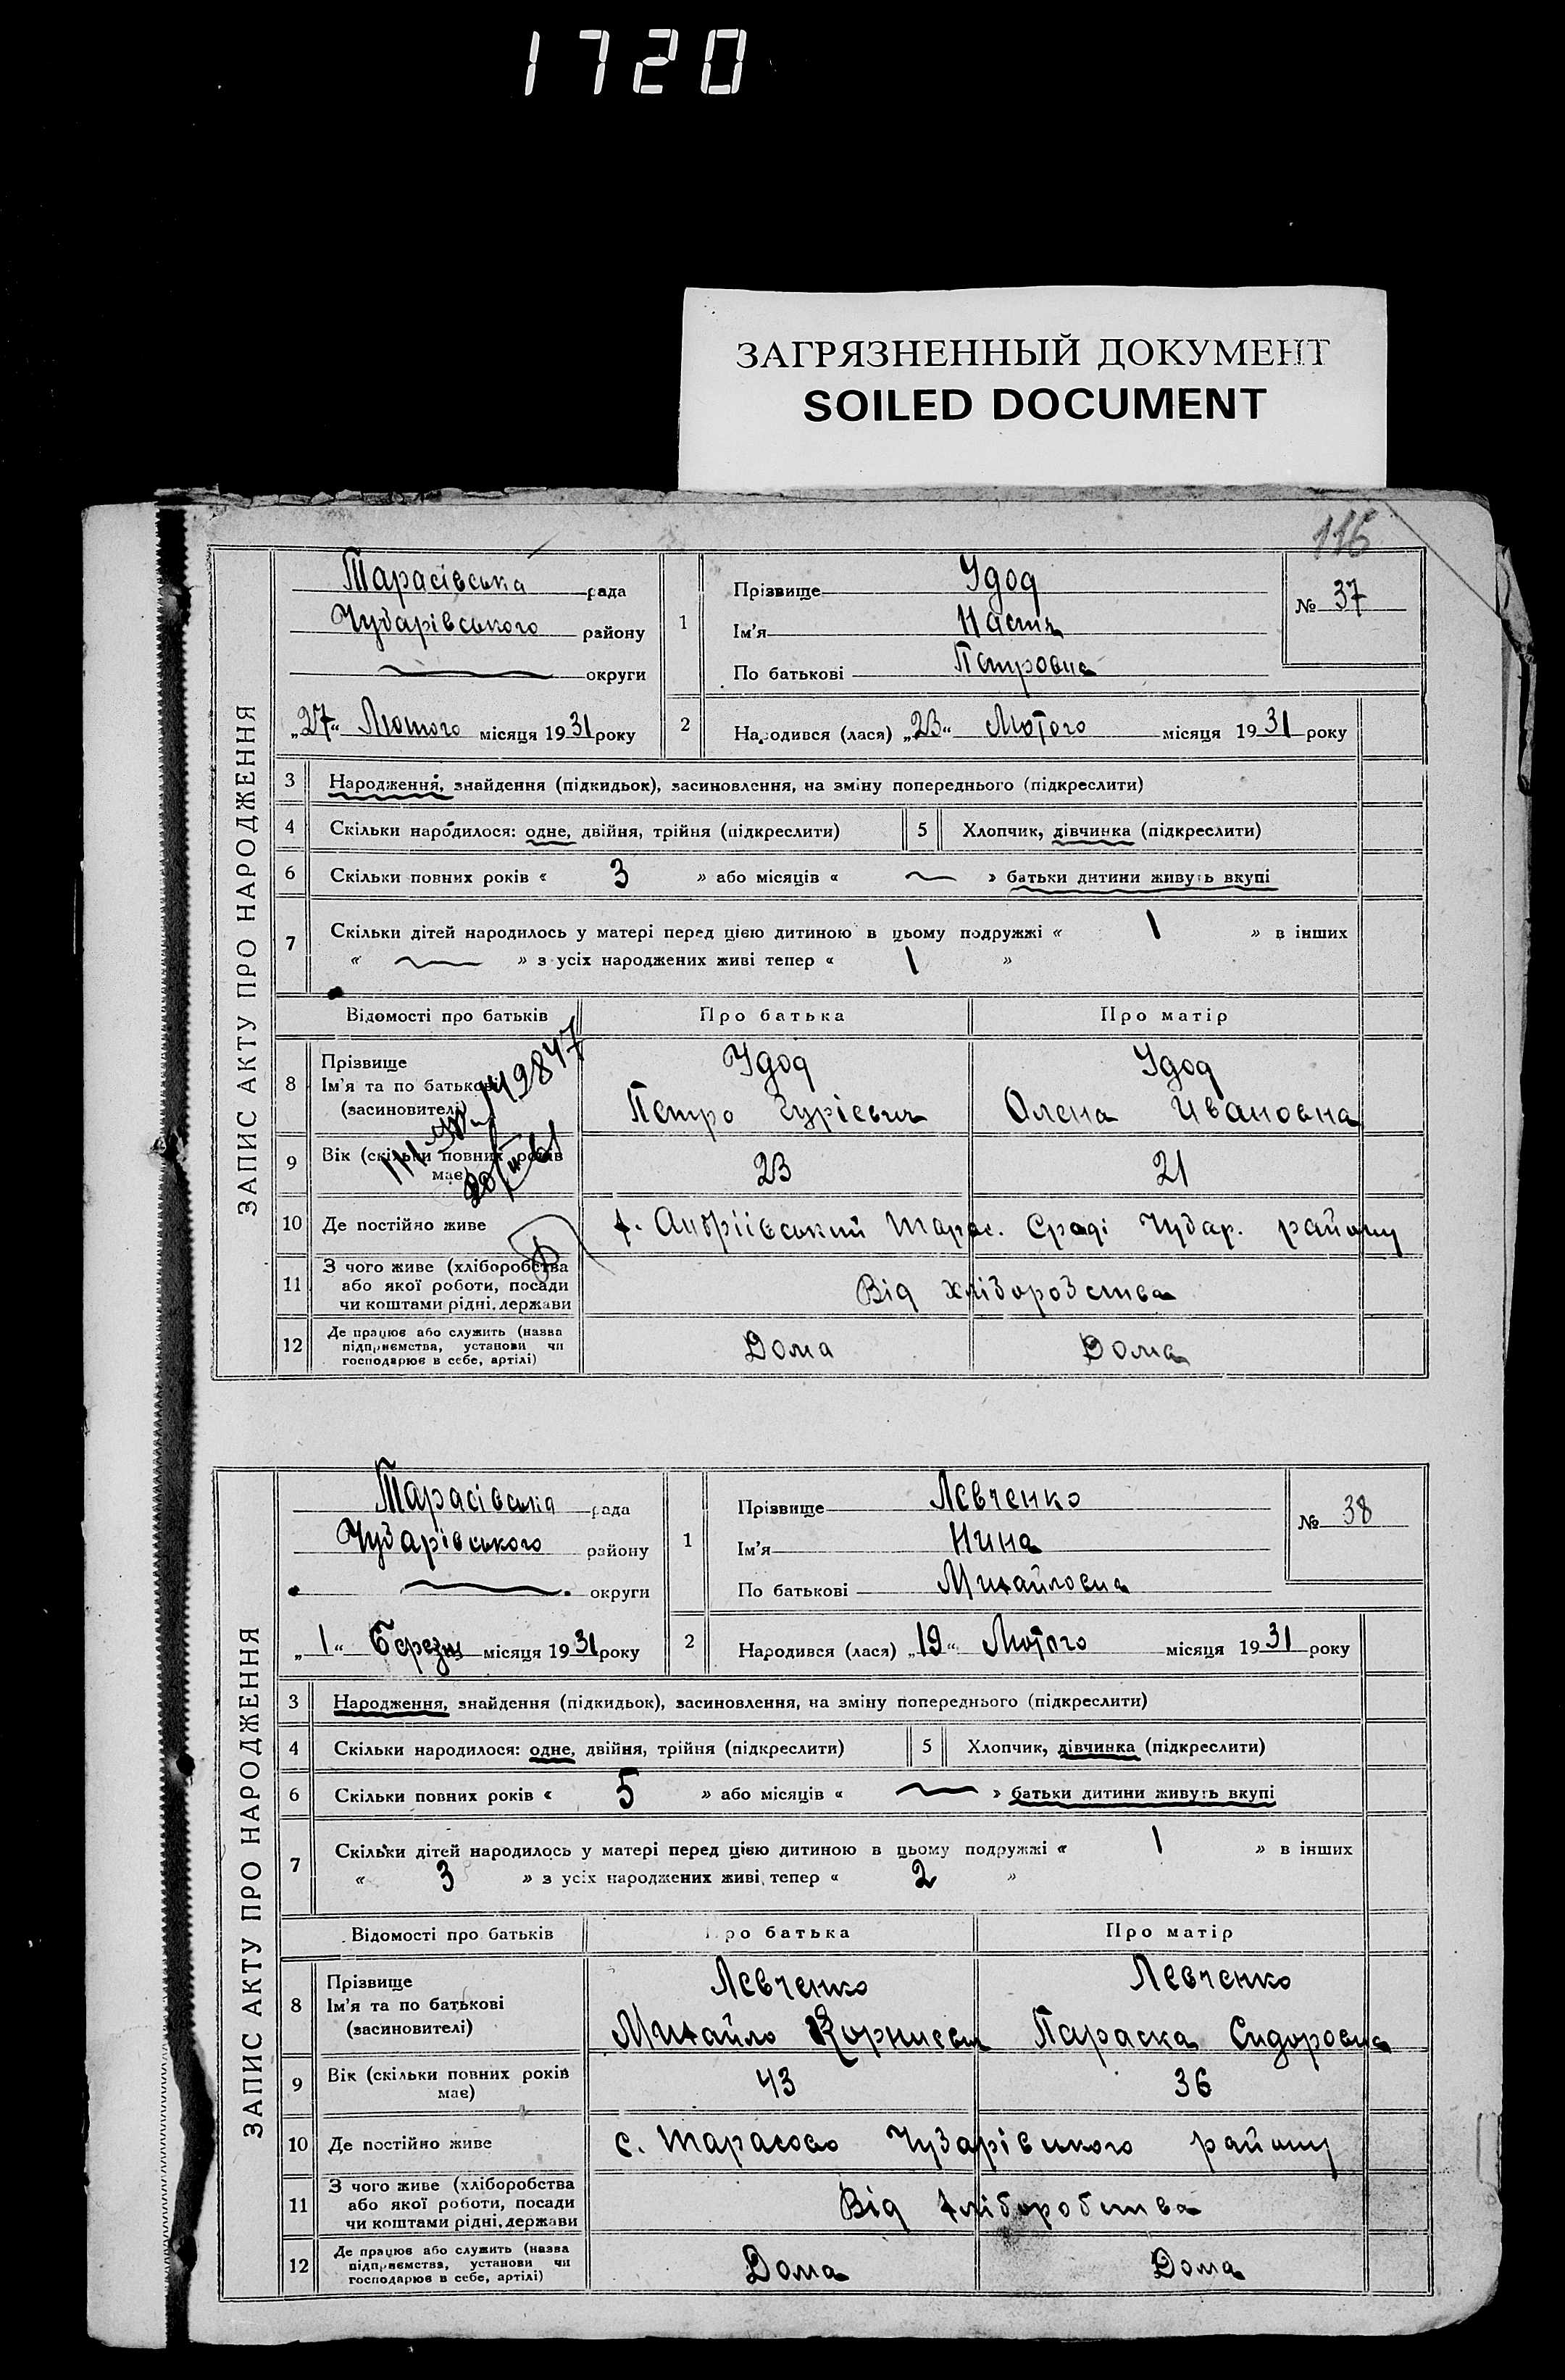 1720
ЗАГРЯЗНЕННЫЙ ДОКУМЕНТ
SOILED DOCUMENT
116
ЗАПИС АКТУ ПРО НАРОДЖЕННЯ
Тарасівська рада
Чубарівського району
округи
„27“ Лютого місяця 1931 року
1
Прізвище Удод
Ім'я Настя
По батькові Петровна
№ 37
2 Народився (лася) „23“ Лютого місяця 1931 року
3 Народження, знайдення (підкидьок), засиновлення, на зміну попереднього (підкреслити)
4 Скільки народилося: одне, двійня, трійня (підкреслити) 5 Хлопчик, дівчинка (підкреслити)
6 Скільки повних років « 3 » або місяців « — » батьки дитини живуть вкупі
7 Скільки дітей народилось у матері перед цією дитиною в цьому подружжі « 1 » в інших
« — » з усіх народжених живі тепер « 1 »
Відомості про батьків Про батька Про матір
8 Прізвище Удод Удод
Ім'я та по батькові
(засновителі) Петро Гурієвич Олена Ивановна
9 Вік (скільки повних років має) 23 21
10 Де постійно живе х. Андріївський Тарас. С/раді Чубар. району
11 З чого живе (хліборобства
або якої роботи, посади Від хліборобства
чи коштами рідні, держави
12 Де працює або служить (назва
підприємства, установи чи Дома Дома
господарює в себе, артілі)
ЗАПИС АКТУ ПРО НАРОДЖЕННЯ
Тарасівська рада
Чубарівського району
округи
„1“ Березня місяця 1931 року
1
Прізвище Левченко
Ім'я Нина
По батькові Михайловна
№ 38
2 Народився (лася) „19“ Лютого місяця 1931 року
3 Народження, знайдення (підкидьок), засиновлення, на зміну попереднього (підкреслити)
4 Скільки народилося: одне, двійня, трійня (підкреслити) 5 Хлопчик, дівчинка (підкреслити)
6 Скільки повних років « 5 » або місяців « — » батьки дитини живуть вкупі
7 Скільки дітей народилось у матері перед цією дитиною в цьому подружжі « 1 » в інших
« 3 » з усіх народжених живі тепер « 2 »
Відомості про батьків Про батька Про матір
8 Прізвище Левченко Левченко
Ім'я та по батькові
(засиновителі) Михайло Корниевич Параска Сидоровна
9 Вік (скільки повних років має) 43 36
10 Де постійно живе с. Тарасово Чубарівського району
11 З чого живе (хліборобства
або якої роботи, посади Від хліборобства
чи коштами рідні, держави
12 Де працює або служить (назва
підприємства, установи чи Дома Дома
господарює в себе, артілі)